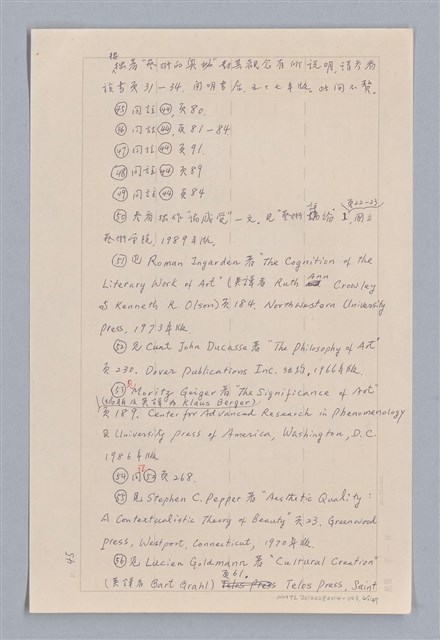 拙著“藝術的奧秘”對其觀念有所說明,請參看
該書頁31-34.開明書店.五十七年版。此間不贅。
㊺同註㊹,頁80.
㊻同註㊹,頁81-84
㊼同註㊹頁91.
㊽同註㊹頁89
㊾同註㊹頁84
㊿參看拙作“論感覺”一文,見“藝術論” 頁22-23
藝術學院1989年版.
(51)見Roman Ingarden著“The Cognition of the
Literary Work of Art”(英譯者Ruth Ann Crowley
& Kenneth R. Olson)頁184. Northwestern University
press, 1973年版
(52)見Curt John Ducasse著“The Philosophy of Art”
頁230. Dover Publications Inc. 1966年版.
(53)見Moritz Geiger著“The Significance of Art”
(英譯者為Klaus Berger)
頁189. Center for Advanced Research in Phenomenology
& University press of America, Washington, D.C.
1986年版
(54)同頁268.
(55)見Stephen C. Pepper著“Aesthetic Quality:
A Contextualistic Theory of Beauty”頁23. Greenwood
press, Westport, Connecticut, 1970年版.
(56)見Lucien Goldmann著“Cultural Creation”
(英譯者Bart Grahl)頁61。Telos Press, Saint
45